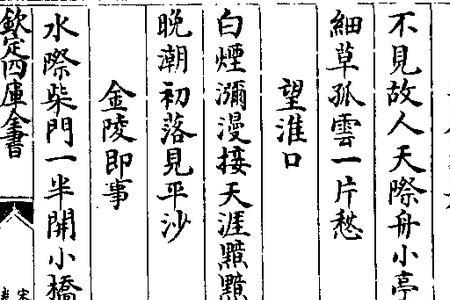 不見故人天際舟小亭
細草孤雲一片愁
望淮口
白煙瀰漫接天涯黯黯
晚潮初落見平沙
金陵即事
水際柴門一半開小橋
欽定四庫全書